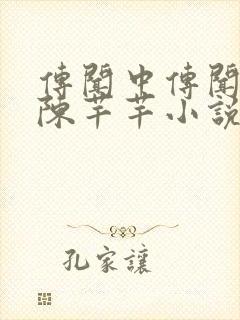 傳聞中傳聞
陳芊芊小說
孔家讓